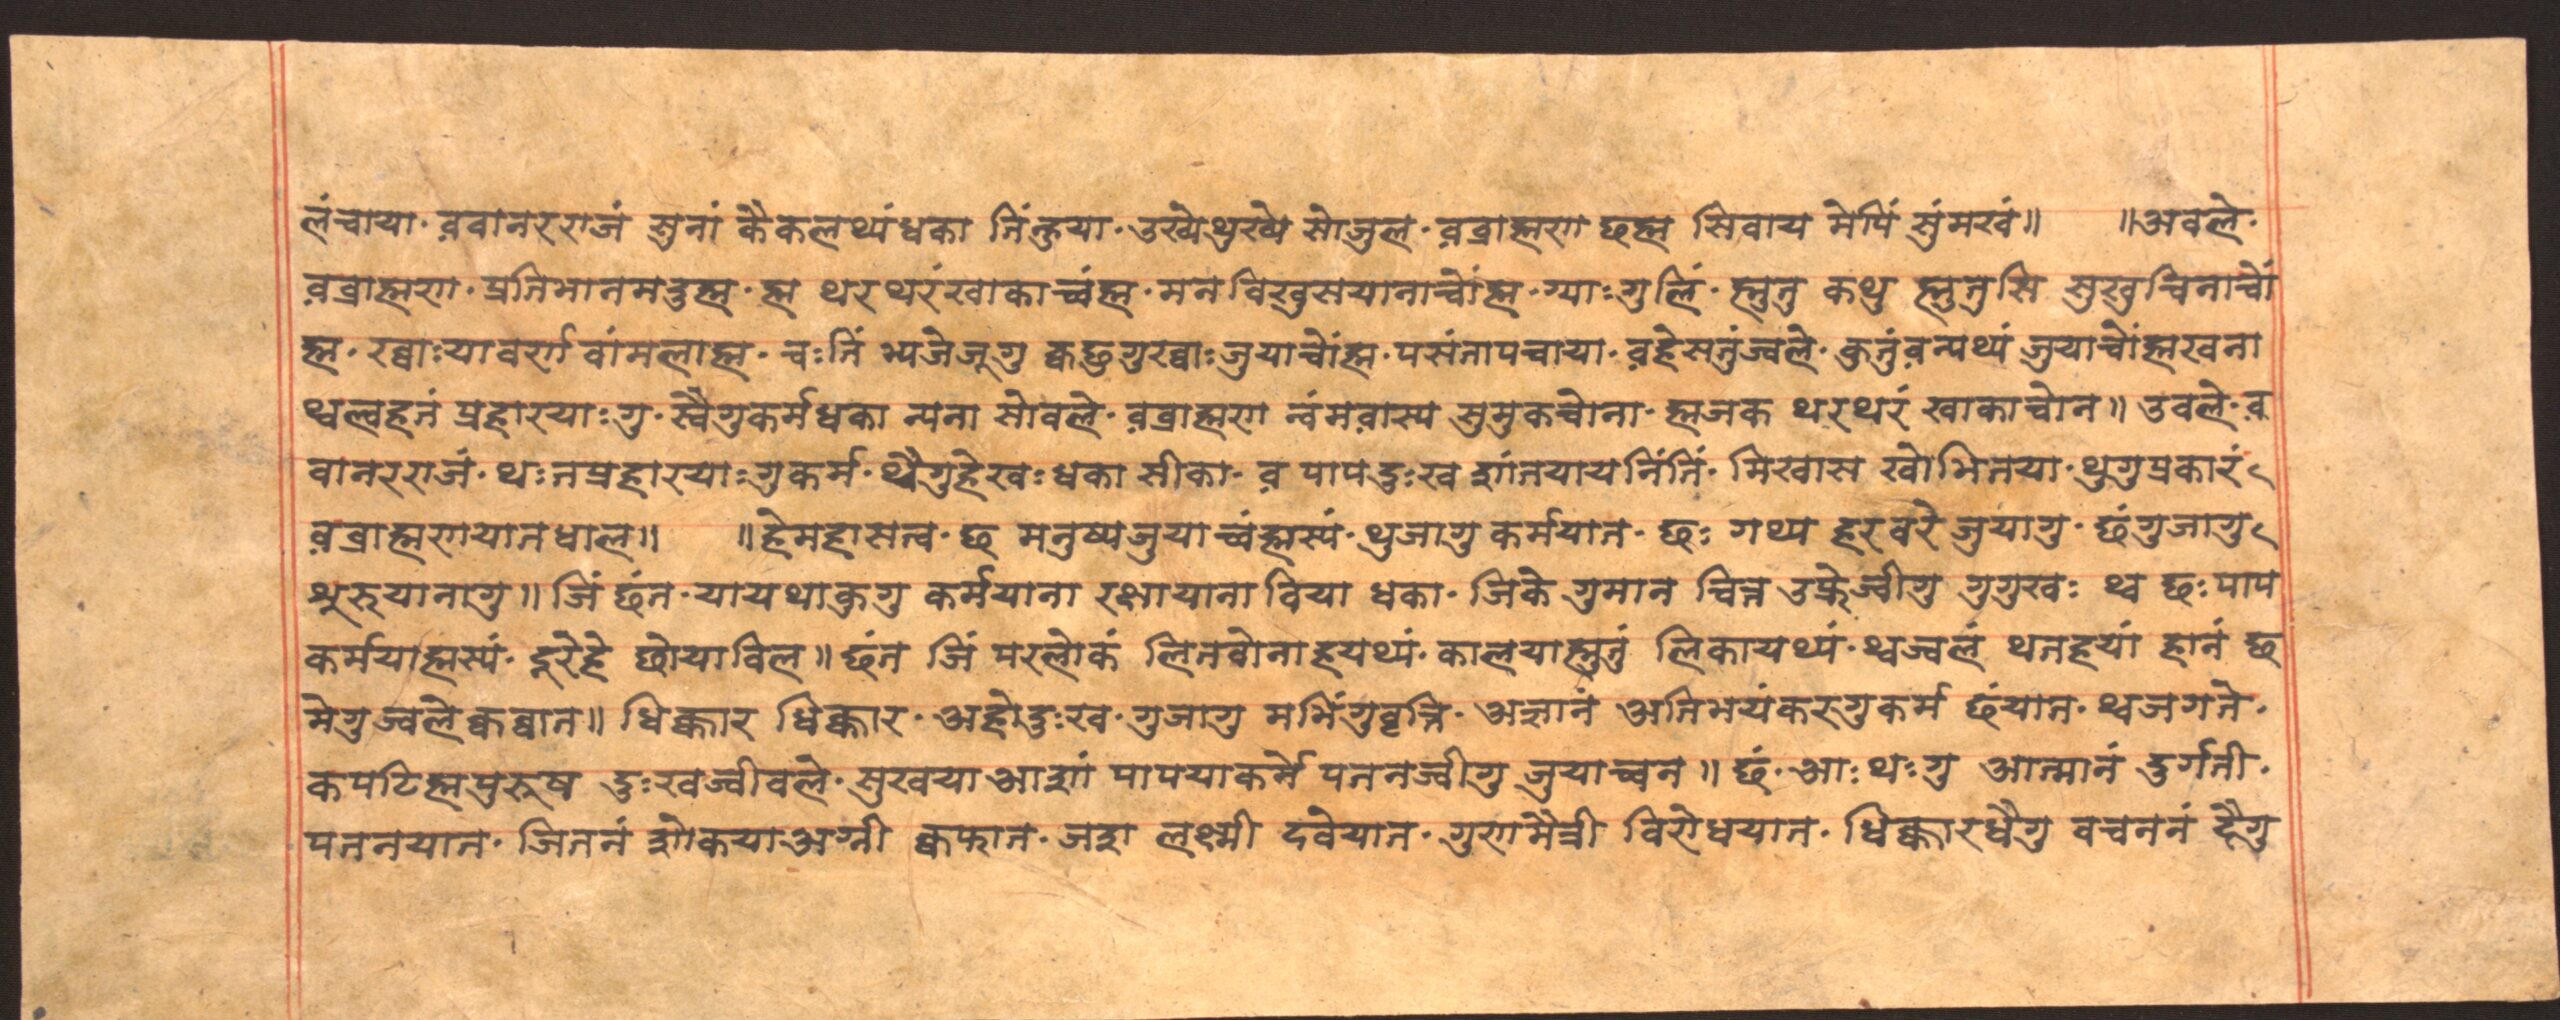 लंचाया· व़वानरराजं सुनां कैकलथ्यंधका निंन्तुया· उख्येथुख्ये सोजुल· व़ब्राह्मण छह्म सिवाय मेपिं सुंमखं॥ ॥अवले·
व़ब्राह्मण· प्रतिभानमदुह्म· ह्म थरथरंखाकाच्वंह्म· मनविखुसयानाचोंह्म· ग्याःगुलिं· ह्तुतु कथु ह्तुतुसि सुखुचिनाचों
ह्म· ख्वाःयावर्ण वांमलाह्म· चःतिं भ्यजेजूगु क्वछुगुख्वाः जुयाचोंह्म· पसंतापचाया· व़हेसतुंज्वले· कुतुंव़न्यथ्यं जुयाचोंह्मखना
थ्वल्वहतं प्रहारयाःगु· स्वैगुकर्मधका न्यना सोवले· व़ब्राह्मण न्वंमव़ास्य सुमुकचोना· ह्मजक थरथरं खाकाचोन॥ उवले· व़
वानरराजं· थःतप्रहारयाःगुकर्म· थ्वैगुहेखःधका सीका· व़ पापदुःख शांतयायनिंतिं· मिखास खोभितया· थुगुप्रकारं
व़ब्राह्मणयातधाल॥ ॥हेमहासत्व· छ मनुष्यजुयाच्वंह्मस्यं· थुजागु कर्मयात· छः गथ्य हरवरे जुयागु· छंगुजागु
थुरुयानागु॥ जिं छंत· यायथाकुगु कर्मयाना रक्षायाना विया धका· जिके गुमान चित्त उफ्रेज्वीगु गुगुखः थ्व छः पाप
कर्मयाह्मस्यं· दूरेहे छोयाविल॥ छंत जिं परलोकं लितवोनाहयथ्यं· कालयाह्तुतुं लिकायथ्यं· थ्वज्वलं थतहयां हानं छ
मेगुज्वलेक्वव्वात॥ धिक्कार धिक्कार· अहोदुःख· गुजागु मभिंगुवृत्ति· अज्ञानं अतिभयंकरुगुकर्म छंयात· थ्वजगते·
कपटिह्मपुरूष दुःखज्वीवले· सुखयाआशां पापयाकर्मे पतनज्वीगु जुयाच्वन॥ छं· आःथःगु आत्मानं दुर्गती·
पतनयात· जितनं शोकयाअग्नी क्वफात· जश लक्ष्मी दवेयात· गुणमैत्री विरोधयात· धिक्कारधैगु वचननं दैगु